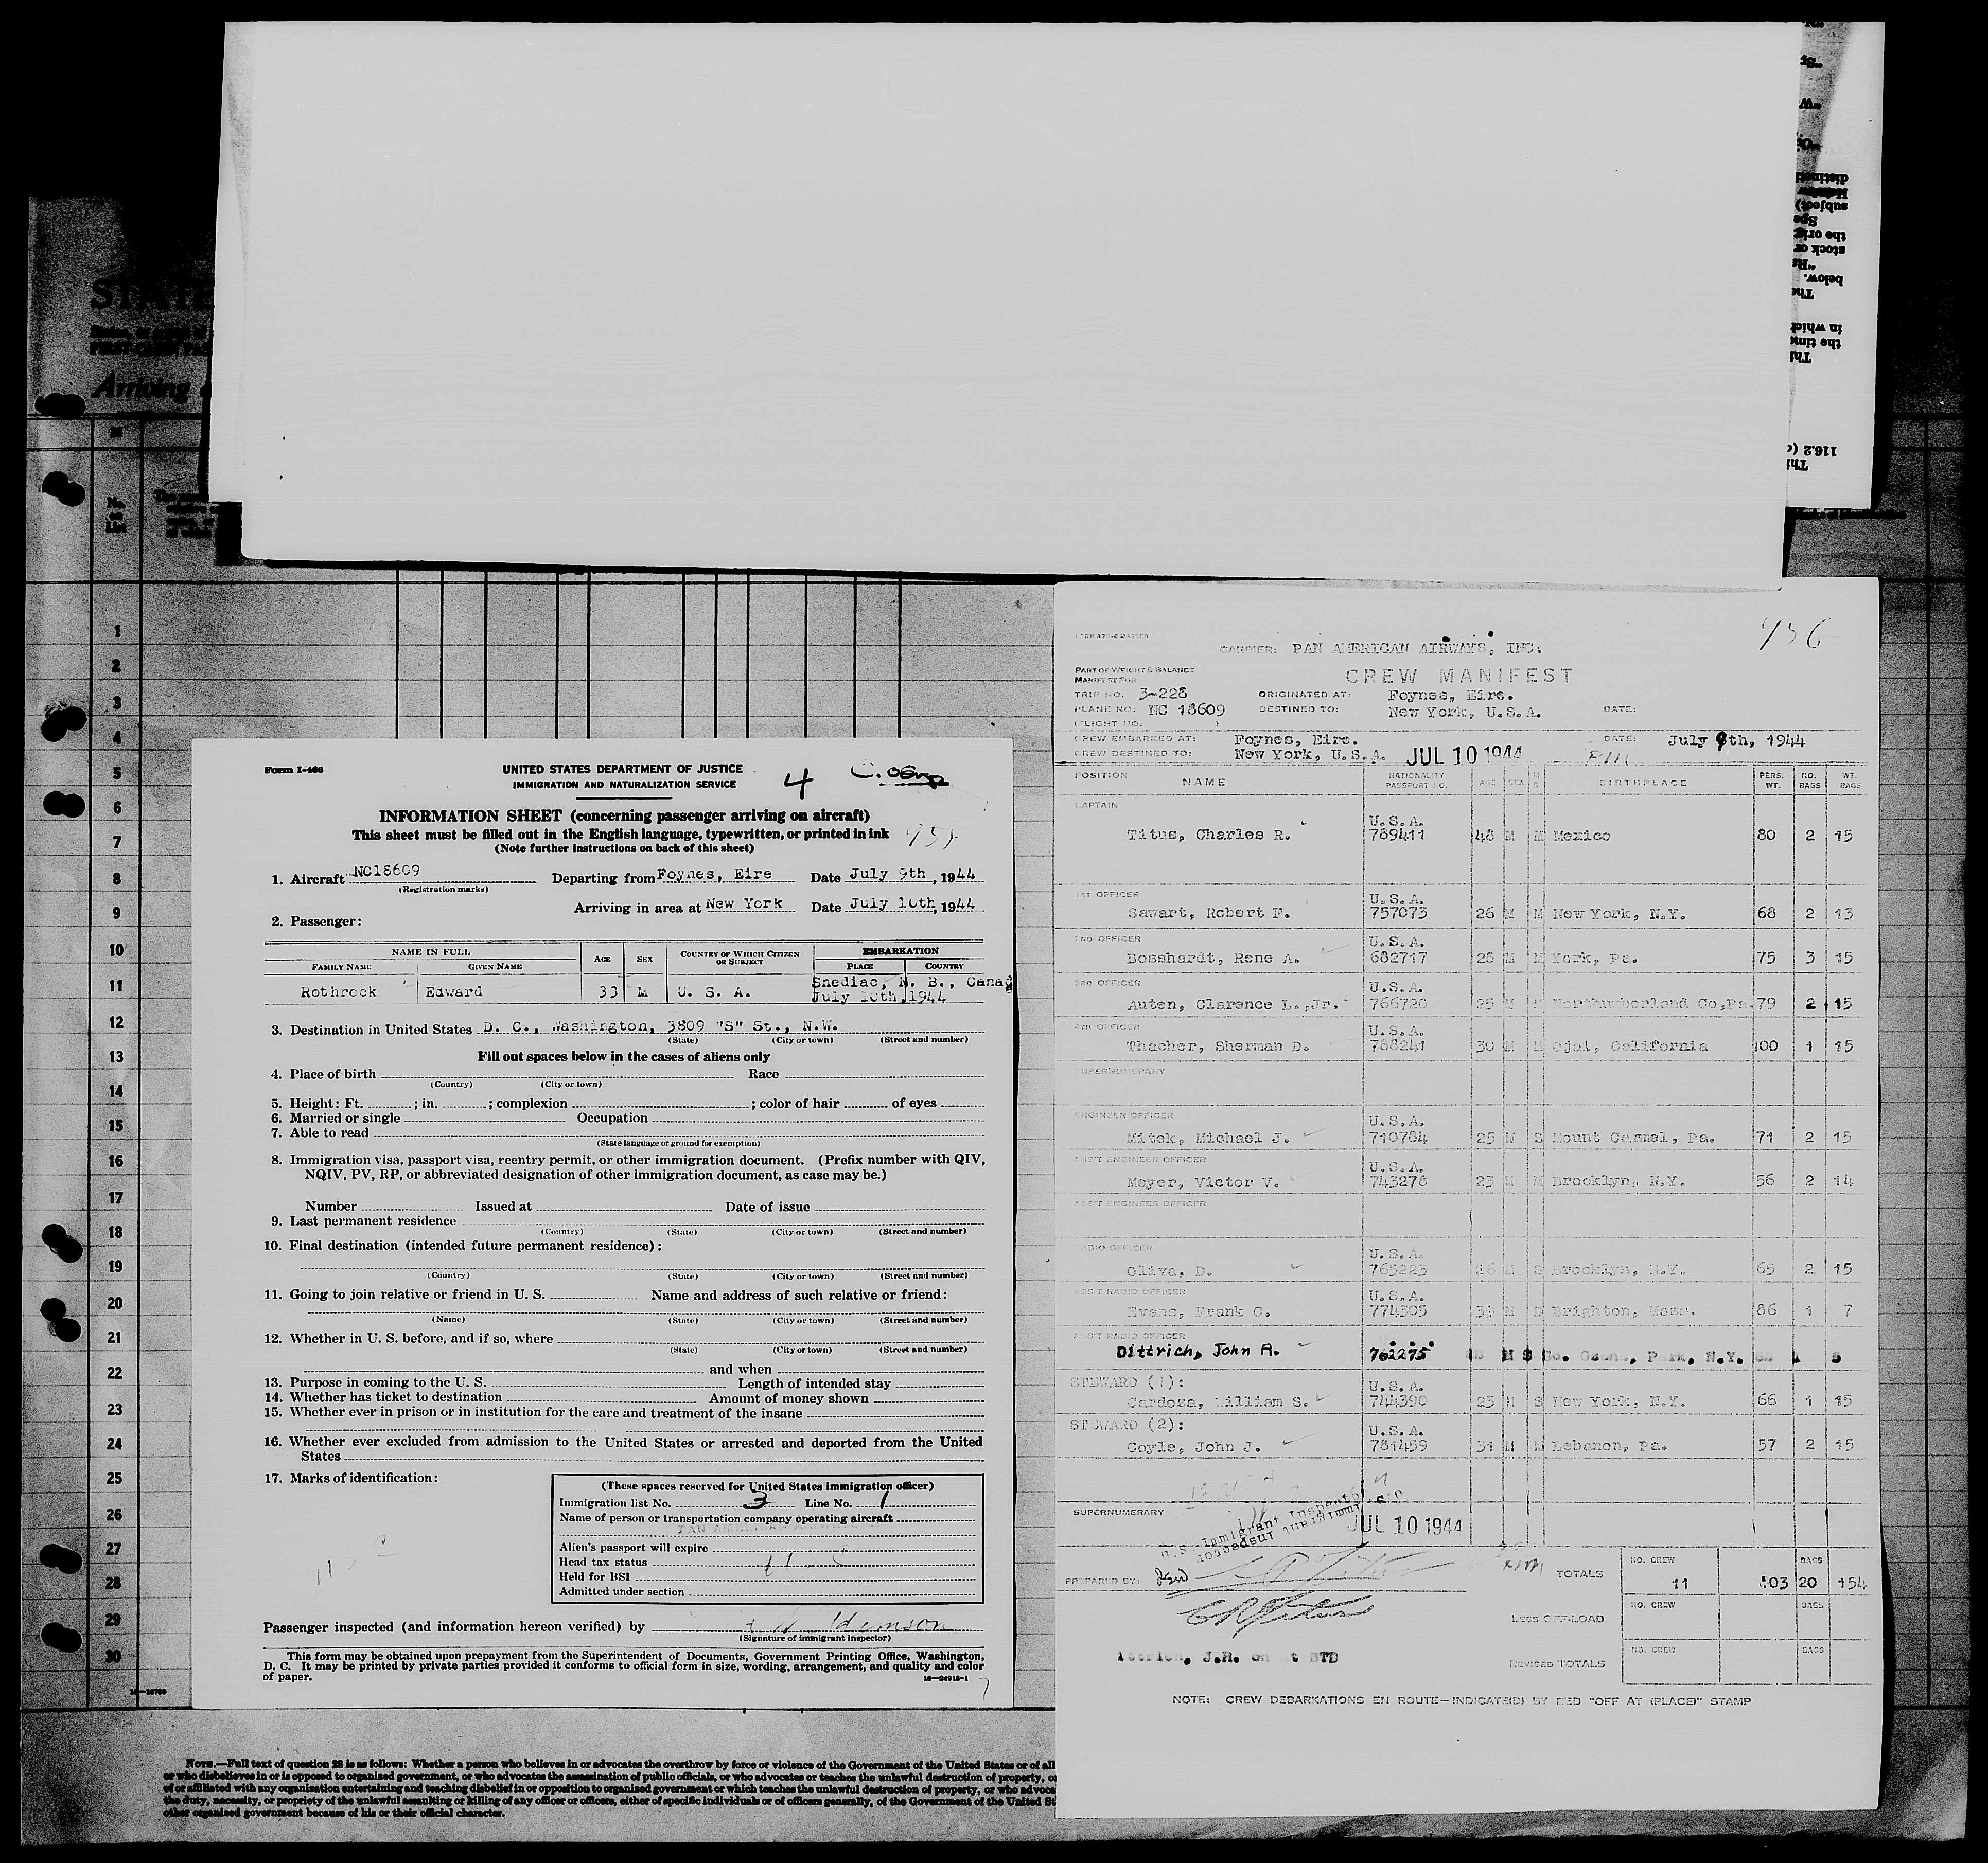 STATE
Arriving
1
2
3
4
5
6
7
8
9
10
11
12
13
14
15
16
17
18
19
20
21
22
23
24
25
26
27
28
29
30
Form I-466
UNITED STATES DEPARTMENT OF JUSTICE
IMMIGRATION AND NATURALIZATION SERVICE
4
INFORMATION SHEET (concerning passenger arriving on aircraft)
This sheet must be filled out in the English language, typewritten, or printed in ink
(Note further instructions on back of this sheet)
1. Aircraft NC18609 Departing from Foynes, Eire Date July 9th, 1944
(Registration marks)
Arriving in area at New York Date July 10th, 1944
2. Passenger:
NAME IN FULL AGE SEX COUNTRY OF WHICH CITIZEN OR SUBJECT EMBARKATION
FAMILY NAME GIVEN NAME PLACE COUNTRY
Rothrock Edward 33 M U. S. A. Shediac, N. B., Canad
July 10th, 1944
3. Destination in United States D. C., Washington, 3809 "S" St., N.W.
(State) (City or town) (Street and number)
Fill out spaces below in the cases of aliens only
4. Place of birth Race
(Country) (City or town)
5. Height: Ft. ; in. ; complexion ; color of hair of eyes
6. Married or single Occupation
7. Able to read
(State language or ground for exemption)
8. Immigration visa, passport visa, reentry permit, or other immigration document. (Prefix number with QIV,
NQIV, PV, RP, or abbreviated designation of other immigration document, as case may be.)
Number Issued at Date of issue
9. Last permanent residence
(Country) (State) (City or town) (Street and number)
10. Final destination (intended future permanent residence):
(Country) (State) (City or town) (Street and number)
11. Going to join relative or friend in U. S. Name and address of such relative or friend:
(Name) (State) (City or town) (Street and number)
12. Whether in U. S. before, and if so, where
(State) (City or town) (Street and number)
and when
13. Purpose in coming to the U. S. Length of intended stay
14. Whether has ticket to destination Amount of money shown
15. Whether ever in prison or in institution for the care and treatment of the insane
16. Whether ever excluded from admission to the United States or arrested and deported from the United
States
17. Marks of identification:
(These spaces reserved for United States immigration officer)
Immigration list No. 3 Line No. 1
Name of person or transportation company operating aircraft
PAN AMERICAN
Alien's passport will expire
Head tax status
Held for BSI
Admitted under section
Passenger inspected (and information hereon verified) by
(Signature of immigrant inspector)
This form may be obtained upon prepayment from the Superintendent of Documents, Government Printing Office, Washington,
D. C. It may be printed by private parties provided it conforms to official form in size, wording, arrangement, and quality and color
of paper.
16—24915-1
936
CARRIER: PAN AMERICAN AIRWAYS, INC.
PART OF WEIGHT & BALANCE
MANIFEST FOR
CREW MANIFEST
TRIP NO: 3-228 ORIGINATED AT: Foynes, Eire.
PLANE NO: NC 18609 DESTINED TO: New York, U.S.A. DATE:
(FLIGHT NO. )
CREW EMBARKED AT: Foynes, Eire. DATE: July 9th, 1944
CREW DESTINED TO: New York, U.S.A. JUL 10 1944
POSITION NAME NATIONALITY PASSPORT NO. AGE SEX BIRTHPLACE PERS. WT. NO. BAGS WT. BAGS
CAPTAIN U.S.A.
Titus, Charles R. 789411 48 M M Mexico 80 2 15
1ST OFFICER U.S.A.
Sawart, Robert F. 757073 26 M M New York, N.Y. 68 2 13
2ND OFFICER U.S.A.
Bosshardt, Rene A. 682717 28 M M York, Pa. 75 3 15
3RD OFFICER U.S.A.
Auten, Clarence L.,Jr. 766720 25 M Northumberland Co,Pa. 79 2 15
4TH OFFICER U.S.A.
Thacher, Sherman D. 788241 30 M M Ojai, California 100 1 15
SUPERNUMERARY
ENGINEER OFFICER U.S.A.
Mitek, Michael J. 710784 25 M S Mount Carmel, Pa. 71 2 15
ASS'T ENGINEER OFFICER U.S.A.
Meyer, Victor V. 743278 23 M M Brooklyn, N.Y. 56 2 14
ASS'T ENGINEER OFFICER
RADIO OFFICER U.S.A.
Oliva, D. 765223 26 M S Brooklyn, N.Y. 65 2 15
ASS'T RADIO OFFICER U.S.A.
Evans, Frank C. 774305 39 M D Brighton, Mass. 86 1 7
ASS'T RADIO OFFICER
Dittrich, John R. 762275 M S So. Ozone, Park, N.Y. 1 9
STEWARD (1): U.S.A.
Cardoza, William S. 744390 23 M S New York, N.Y. 66 1 15
STEWARD (2): U.S.A.
Coyle, John J. 781459 31 M M Lebanon, Pa. 57 2 15
SUPERNUMERARY
U.S. Immigrant Inspector
JUL 10 1944
PREPARED BY: TOTALS NO. CREW 11 803 BAGS 20 154
LESS OFF-LOAD NO. CREW BAGS
REVISED TOTALS NO. CREW BAGS
NOTE: CREW DEBARKATIONS EN ROUTE—INDICATE(D) BY RED "OFF AT (PLACE)" STAMP
NOTE.—Full text of question 28 is as follows: Whether a person who believes in or advocates the overthrow by force or violence of the Government of the United States or of all
or who disbelieves in or is opposed to organized government, or who advocates the assassination of public officials, or who advocates or teaches the unlawful destruction of property, o
of or affiliated with any organization entertaining and teaching disbelief in or opposition to organized government or which teaches the unlawful destruction of property, or who advoca
the duty, necessity, or propriety of the unlawful assaulting or killing of any officer or officers, either of specific individuals or of officers generally, of the Government of the United St
other organized government because of his or their official character.